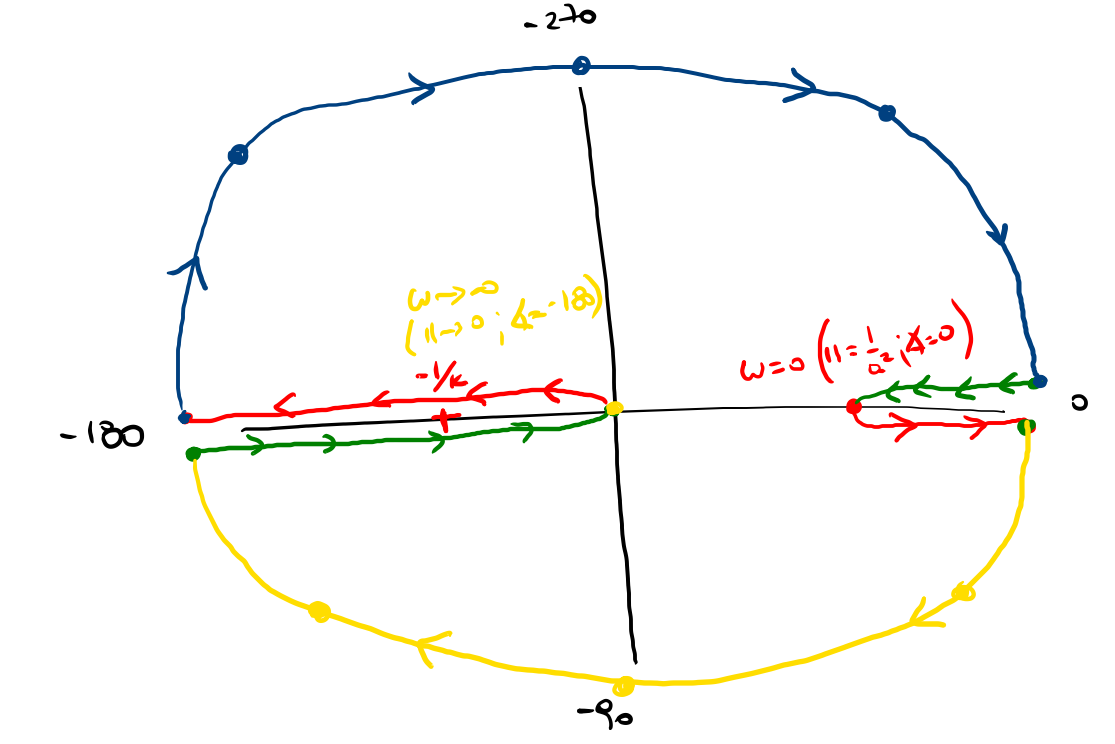 -270
ω→∞
(||→0 ; ∡=-180)
-1/k
ω=0 (||=1/a² ; ∡=0)
-180
0
-90